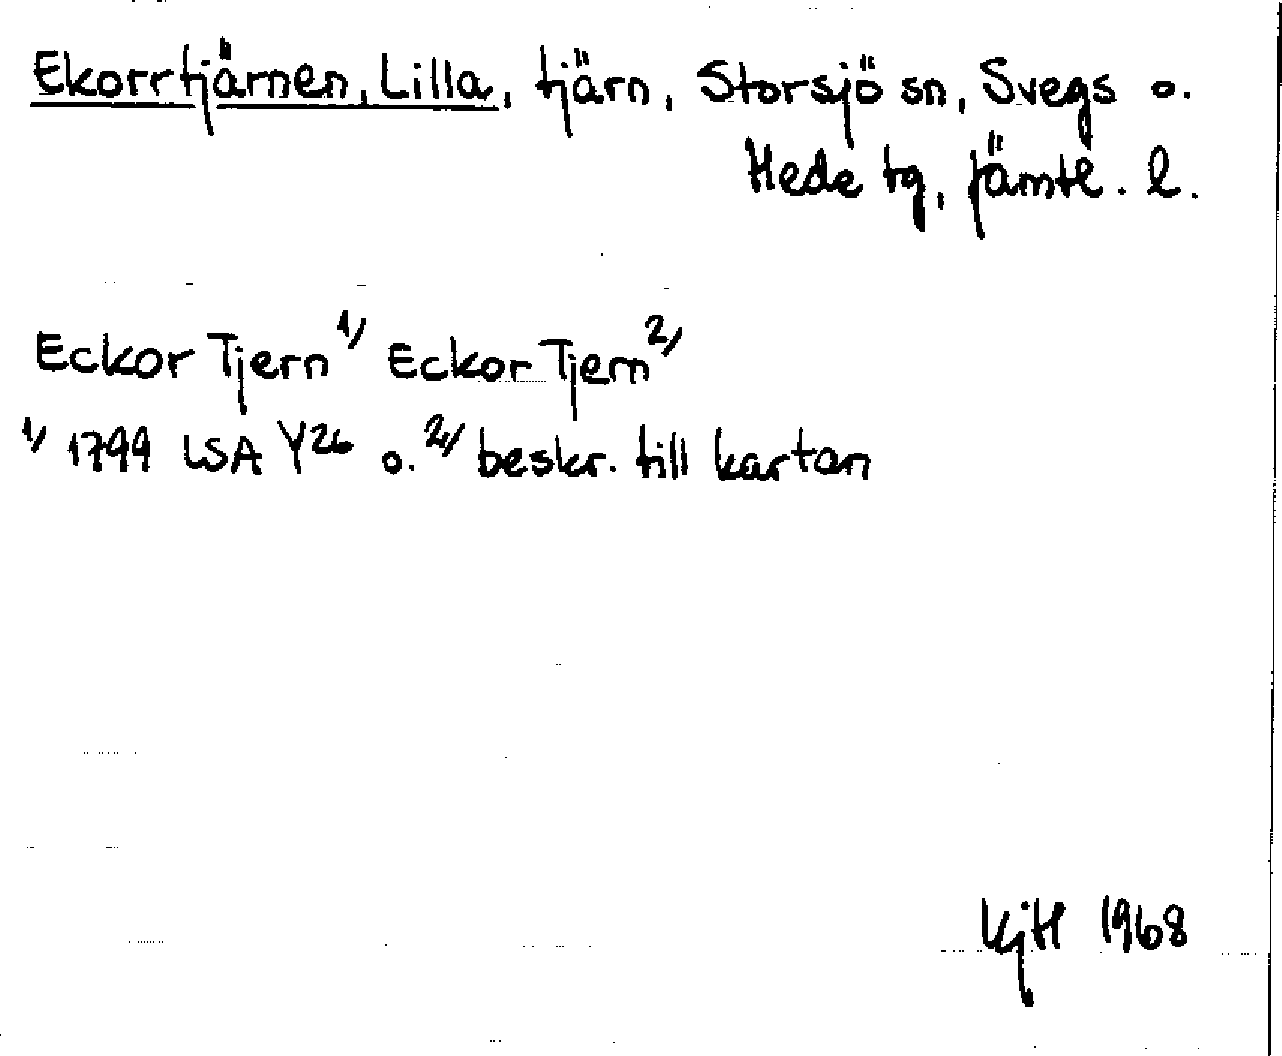 Ekorrtjärnen, Lilla, tjärn, Storsjö sn, Svegs o.
Hede tg, Jämtl. l.
Eckor Tjern 1/ Eckor Tjern 2/
1/ 1799 LSA Y26 o. 2/ beskr. till kartan
KjH 1968